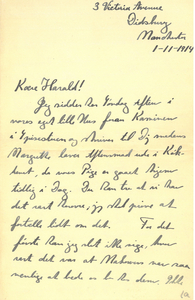 3 Victoria Avenue
Didsbury
Manchester
1-11-1914
Kære Harald!
Jeg sidder her Søndag Aften i
vores eget lille Hus foran Kaminen
i Spisestuen og skriver til Dig medens
Margrethe laver Aftensmad ude i Køk-
kenet, da vores Pige er gaaet hjem
tidlig i Dag. Du kan tro at vi har
det rart herovre; jeg skal prøve at
fortælle lidt om det. For det
første kan jeg slet ikke sige, hvor
rart det var at
at bede os bo hos dem